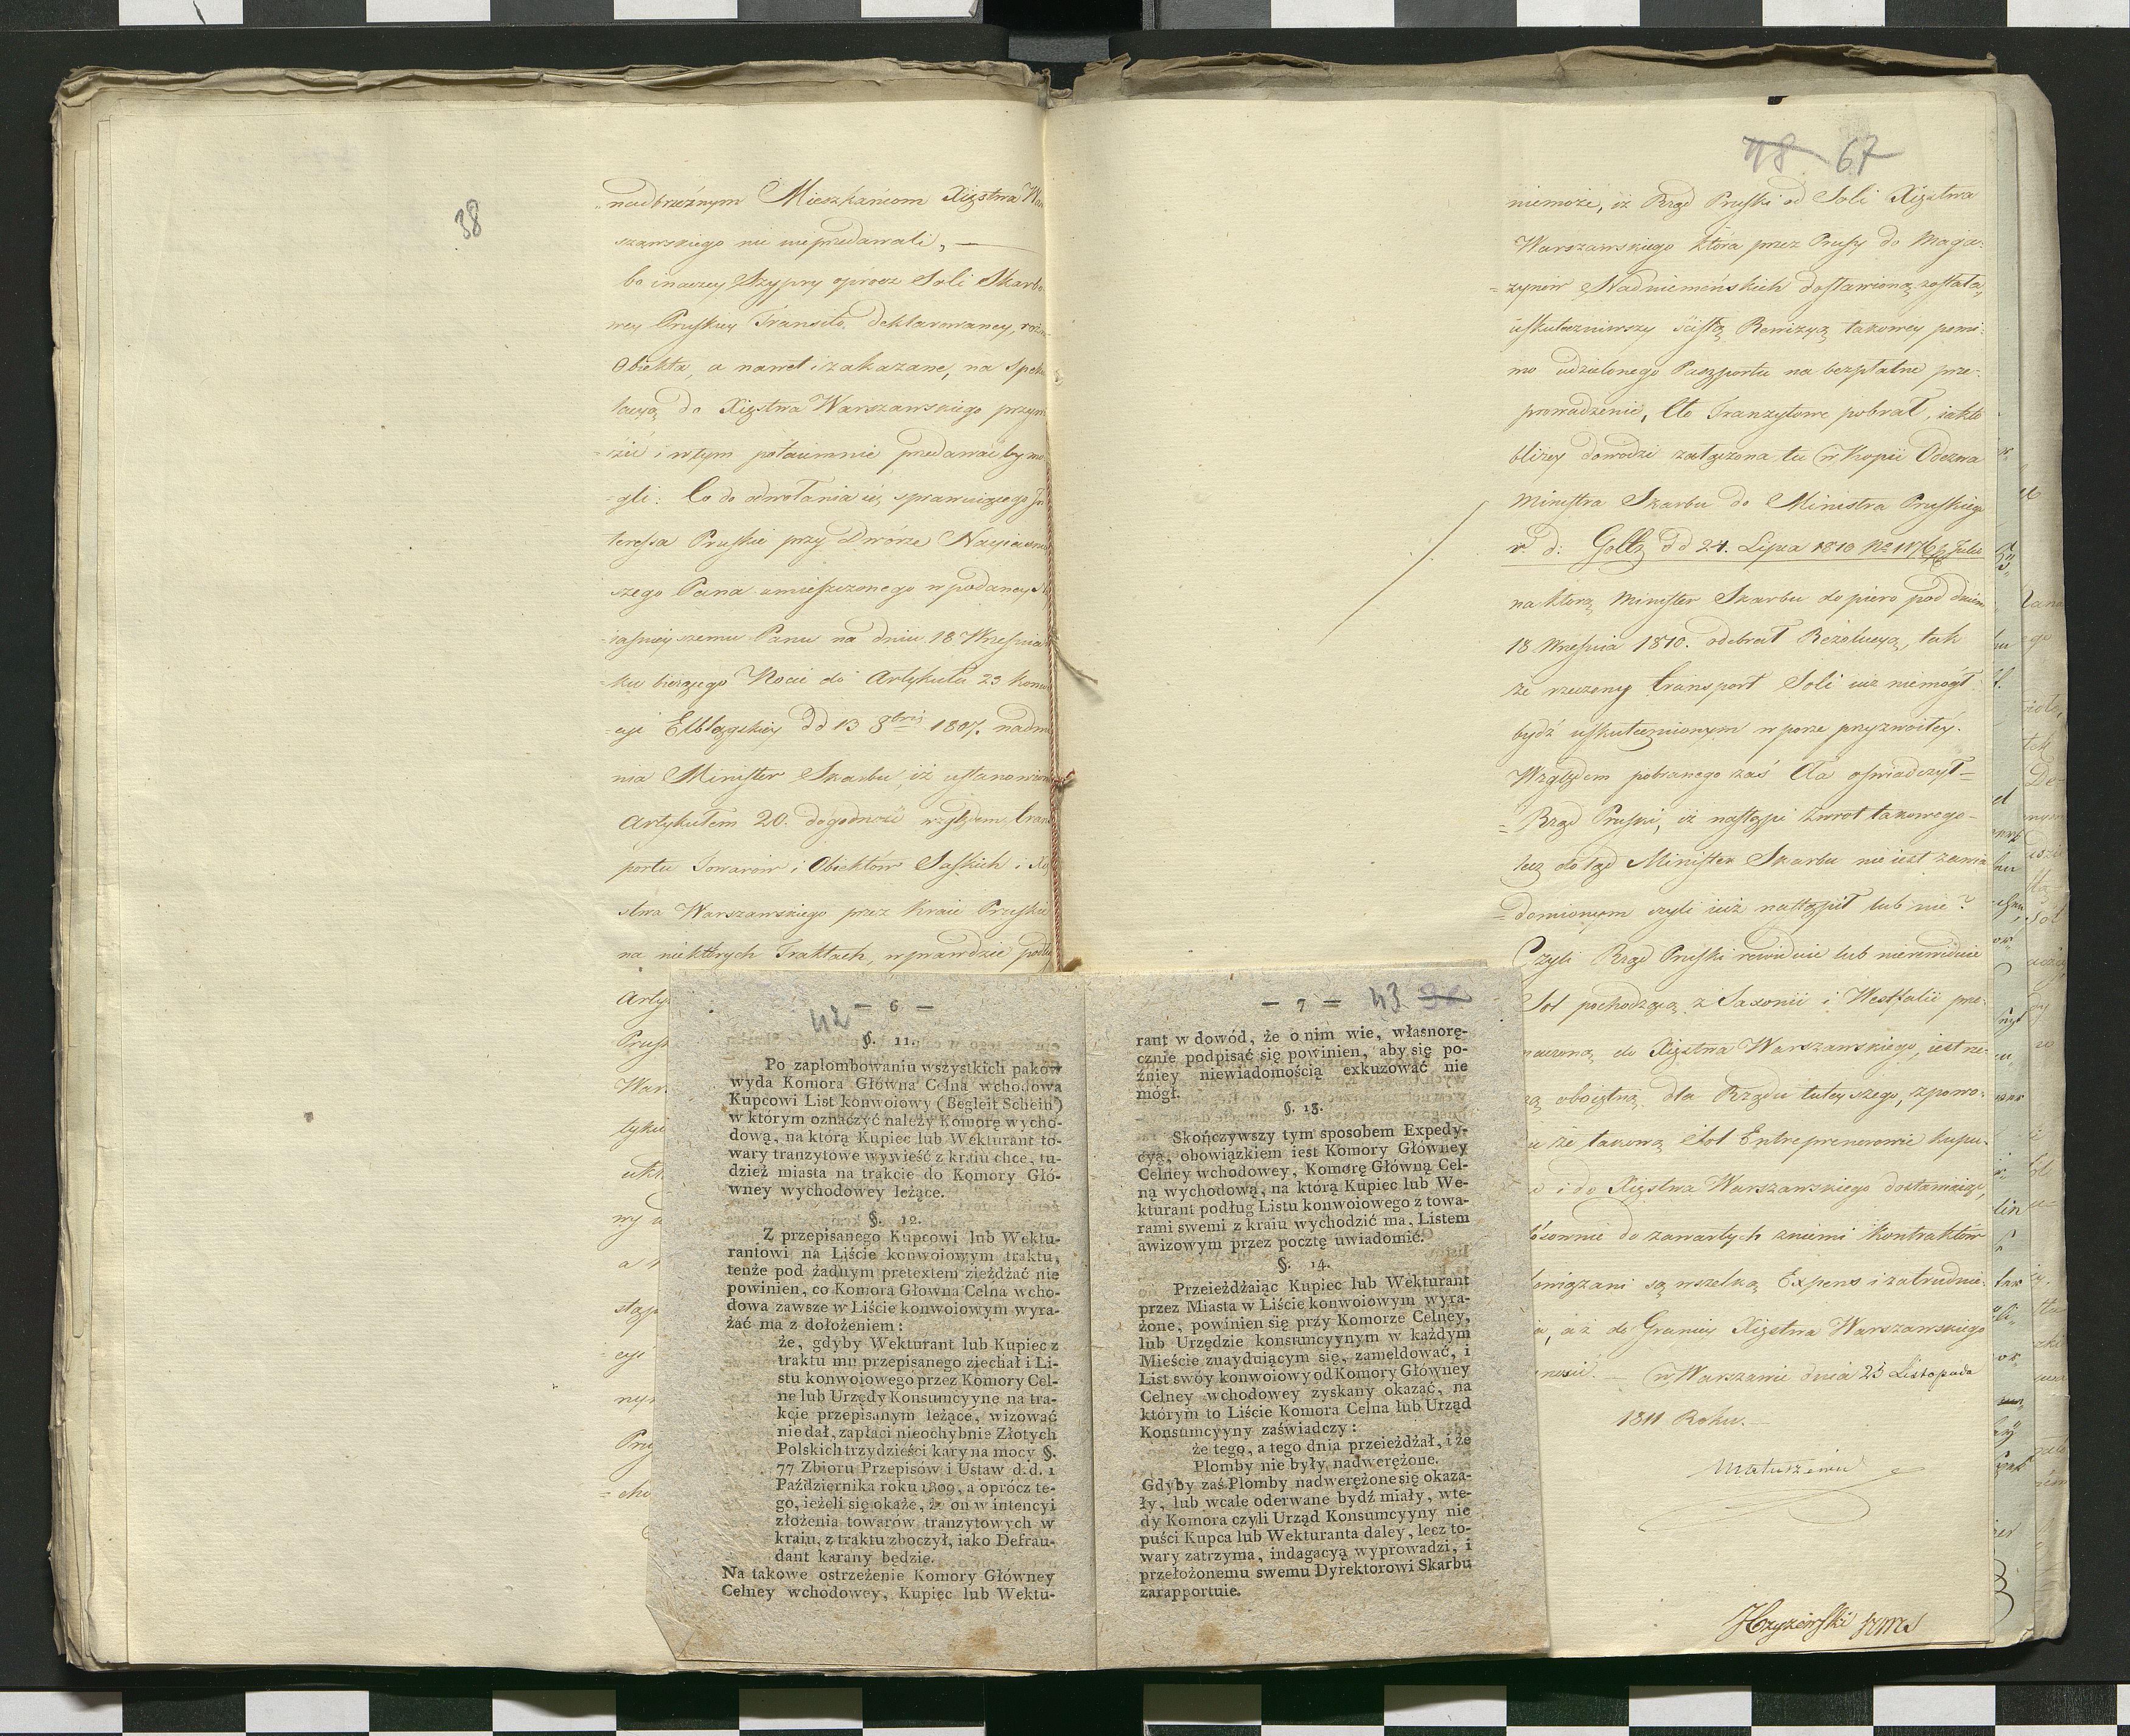 38
nadbrzeżnym Mieszkańcom Xięstwa War
szawskiego nie wyprzedawali, —
bo inaczey Szypry oprócz Soli Skarbo
wey Pruskiey Transito deklarowaney, różne
Obiekta, a nawet i zakazane, na speku
lacyą do Xięstwa Warszawskiego
i w tym potaiemnie przedawać by mo
=gli. Co do odwołania się sprawuiącego In
teressa Pruskie przy Dworze Nayiaśniey
szego Pana umieszczonego w podaney
=iaśnieyszemu Panu na dniu 18 Września
=ku bieżącego Nocie do Artykułu 23 Konwen
=cyi Elbląskiey dd 13 8bris 1807. nadmie
nia Minister Skarbu, iż ustanowiona
Artykułem 20. dogodność względem trans
portu Towarów i Obiektów Saskich i Xię
stwa Warszawskiego przez Kraie Pruskie
na niektórych Traktach, wprawdzie podług
Arty
Prus
War
tyku
a
stąp
cyi
Pru
48 67
niemoże, iż Rząd Pruski od Soli Xięstwa
Warszawskiego która przez Prusy do Maga=
=zynów Nadniemeńskich dostawioną została,
uskuteczniwszy ścisłą Rewizyą takowey pomi=
mo udzielonego Paszportu na bezpłatne prze=
prowadzenie, Cło Tranzytowe pobrał, iak to
bliżey dowodzi załączona tu w Kopii Odezwa
Ministra Skarbu do Ministra Pruskiego
v. d: Goltz dd 24. Lipca 1810
na którą Minister Skarbu dopiero pod dniem
18 Września 1810. odebrał Rezolucyą, tak
że rzeczony transport Soli iuż niemógł
bydź uskutecznionym w porze przyzwoitey.
Względem pobranego zaś Cła oświadczył
=Rząd Pruski, iż nastąpi zwrot takowego=
lecz dotąd Minister Skarbu nie iest zawia
=domionym czyli iuż nastąpił lub nie?
Czyli Rząd Pruski rewiduie lub nierewiduie
Sol pochodzącą z Saxonii i Westfalii prze=
naczoną do Xięstwa Warszawskiego, iest rze=
czą oboiętną dla Rządu tuteyszego, zpowo=
du że takową Sol Entreprenerowie kupu=
i do Xięstwa Warszawskiego dostawiaią,
stósownie do zawartych zniemi Kontraktów
obowiązani są wszelką Expens i zatrudnie=
nia, aż do Granicy Xięstwa Warszawskiego
ponosić. — w Warszawie dnia 23 Listopada
1811 Roku. —
Matuszewic
— 6 —
42
§. 11.
Po zaplombowaniu wszystkich paków
wyda Komora Główna Celna wchodowa
Kupcowi List konwoiowy (Begleit Schein)
w którym oznaczyć należy Komorę wycho-
dową, na którą Kupiec lub Wekturant to-
wary tranzytowe wywieść z kraiu chce, tu-
dzież miasta na trakcie do Komory Głó-
wney wychodowey leżące.
§. 12.
Z przepisanego Kupcowi lub Wektu-
rantowi na Liście konwoiowym traktu,
tenże pod żadnym pretextem zieżdżać nie
powinien, co Komora Głowna Celna wcho-
dowa zawsze w Liście konwoiowym wyra-
żać ma z dołożeniem:
że, gdyby Wekturant lub Kupiec z
traktu mu przepisanego ziechał i Li-
stu konwoiowego przez Komory Cel-
ne lub Urzędy Konsumcyyne na tra-
kcie przepisanym leżące, wizować
nie dał, zapłaci nieochybnie Złotych
Polskich trzydzieści kary na mocy §.
77 Zbioru Przepisów i Ustaw d. d. 1
Października roku 1809, a oprócz te-
go, ieżeli się okaże, że on w intencyi
złożenia towarów tranzytowych w
kraiu, z traktu zboczył, iako Defrau-
dant karany będzie.
Na takowe ostrzeżenie Komory Główney
Celney wchodowey, Kupiec lub Wektu-
— 7 — 43
rant w dowód, że o nim wie, własnorę-
cznie podpisać się powinien, aby się po-
źniey niewiadomością exkuzować nie
mógł.
§. 13.
Skończywszy tym sposobem Expedy-
cyą, obowiązkiem iest Komory Główney
Celney wchodowey, Komorę Główną Cel-
ną wychodową, na którą Kupiec lub We-
kturant podług Listu konwoiowego z towa-
rami swemi z kraiu wychodzić ma, Listem
awizowym przez pocztę uwiadomić.
§. 14.
Przeieżdżaiąc Kupiec lub Wekturant
przez Miasta w Liście konwoiowym wyra-
żone, powinien się przy Komorze Celney,
lub Urzędzie konsumcyynym w każdym
Mieście znayduiącym się, zameldować, i
List swóy konwoiowy od Komory Główney
Celney wchodowey zyskany okazać, na
którym to Liście Komora Celna lub Urząd
Konsumcyyny zaświadczy:
że tego, a tego dnia przeieżdżał, i że
Plomby nie były nadwerężone.
Gdyby zaś Plomby nadwerężone się okaza-
ły, lub wcale oderwane bydź miały, wte-
dy Komora czyli Urząd Konsumcyyny nie
puści Kupca lub Wekturanta daley, lecz to-
wary zatrzyma, indagacyą wyprowadzi, i
przełożonemu swemu Dyrektorowi Skarbu
zarapportuie.